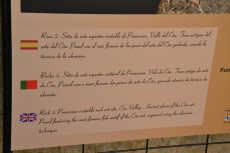 Roca 3. Sitio de arte rupestre visitable de Penascosa. Valle del Côa. Fase antigua del
arte del Côa. Panel con el más famoso de los peces del arte del Côa grabado, usando la
técnica de la abrasión.
Rocha 3. Sítio de arte rupestre visitável da Penascosa. Vale do Côa. Fase antiga da arte
do Côa. Painel com o mais famoso dos peixes da arte do Côa, gravado através da técnica de
abrasão.
Rock 3. Penascosa visitable rock art site, Côa Valley. Ancient phase of the Côa art.
Panel featuring the most famous fish motif of the Côa art, engraved using the abrasion
technique.